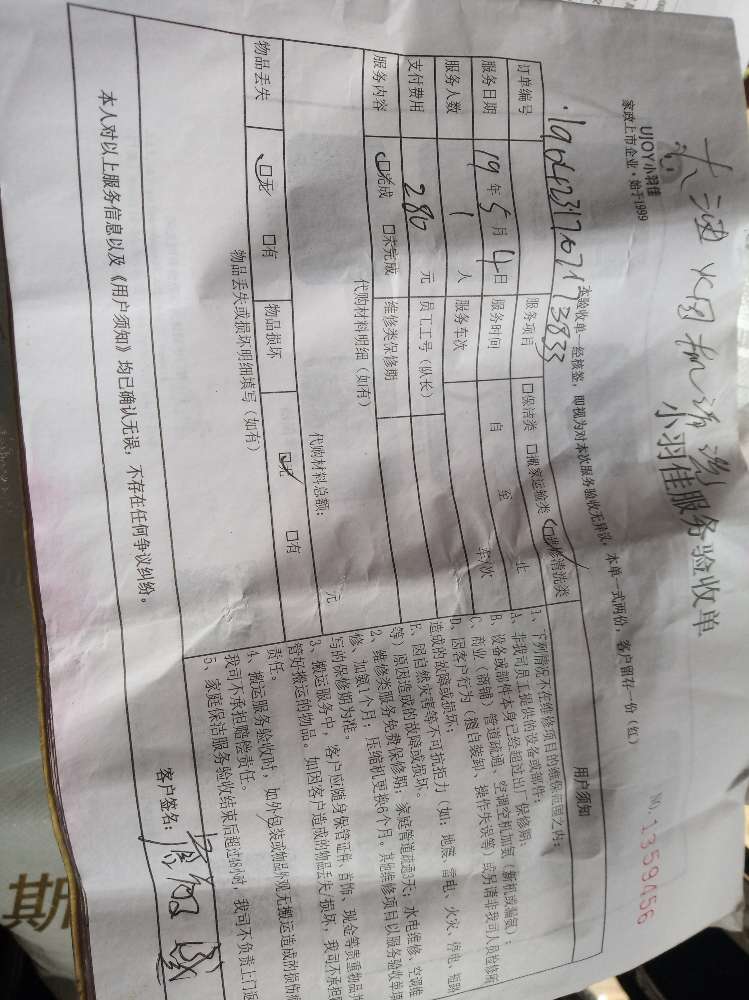 UJOY小羽佳
家政上市企业·始于1999
油烟机清洗
小羽佳服务验收单
NO 1359456
本验收单一经核签，即视为对本次服务验收无异议，本单一式两份，客户留存一份（红）
订单编号
服务项目 口保洁类 口搬家运输类 口维修清洗类
服务日期 19年5月4日 服务时间 自 至 止
服务人数 1人 服务车次 车/次
支付费用 280元 员工工号（队长）
服务内容 口完成 口未完成 维修类保修期
代购材料明细（如有）
代购材料总额： 元
物品丢失 口无 口有 物品损坏 口无 口有
物品丢失或损坏明细填写（如有）
本人对以上服务信息以及《用户须知》均已确认无误，不存在任何争议纠纷。
用户须知
1、下列情况不在维修项目的维保范围之内：
A、非我司员工提供的设备或部件；
B、设备或部件本身已经超过出厂保修期；
C、商业（商铺）管道疏通、空调空机加氨（新机或漏氨）；
D、因客户行为（擅自装卸、操作失误等）或另请非我司人员检修所
造成的故障或损坏；
E、因自然灾害等不可抗拒力（如：地震、雷电、火灾、停电、短路
等）原因造成的故障或损坏。
2、维修类服务免费保修期：家庭管道疏通3天；水电维修、空调维
修、加氨1个月；压缩机更换6个月。其他维修项目以服务验收单填
写的保修期为准。
3、搬运服务中，客户应随身保管证件、首饰、现金等贵重物品并
管好搬运的物品。如因客户造成的物品丢失/损坏，我司不承担
责任。
4、搬运服务验收时，如外包装或物品外观无搬运造成的损伤
我司不承担赔偿责任。
5、家庭保洁服务验收结束后超过48小时，我司不负责上门返
客户签名：
斯